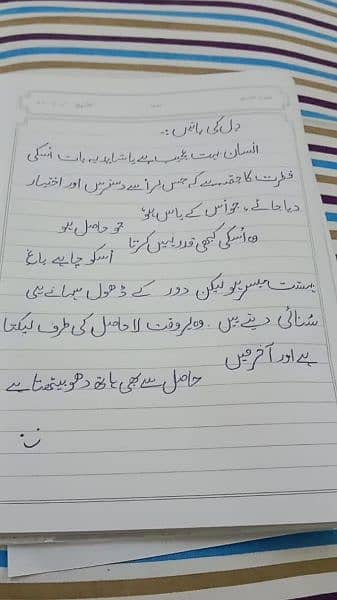 دل کی باتیں :۔
انسان بہت عجیب ہے یا شاید یہ بات اُسکی
فطرت کا حصّہ ہے کہ جس پر اُسے دسترس اور اختیار
دیا جائے ، جو اُس کے پاس ہو، جو حاصل ہو
وہ اُسکی کبھی قدر نہیں کرتا اسکو چاہے باغ
بہشت میسر ہو لیکن دور کے ڈھول سہانے ہی
سُنائی دیتے ہیں ۔ وہ ہر وقت لاحاصل کی طرف لپکتا
ہے اور آخر میں
حاصل سے بھی ہاتھ دھو بیٹھتا ہے